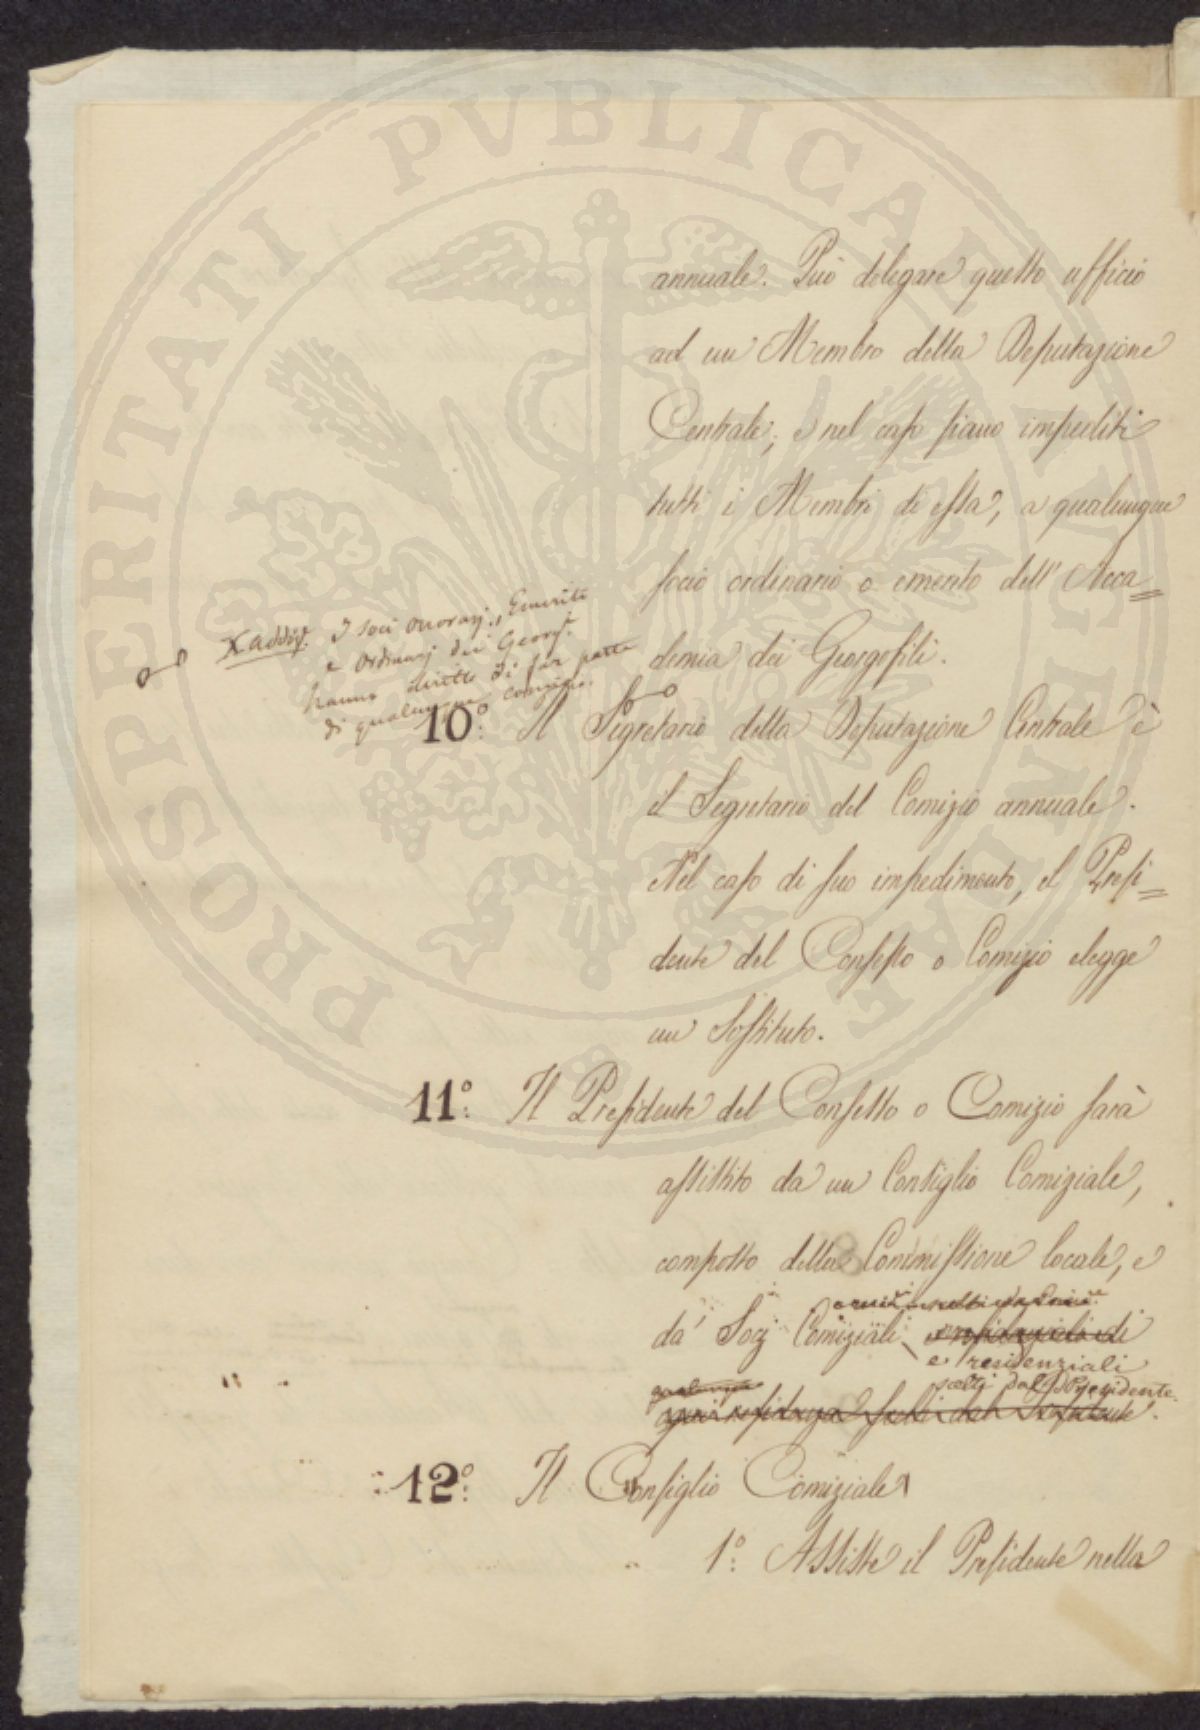 PROSPERITATI PVBLICAE AVGENDAE
annuale. Può delegare questo ufficio
ad un Membro della Deputazione
Centrale, e nel caso siano impediti
tutti i Membri di essa, a qualunque
socio ordinario o emerito dell' Acca=
demia dei Georgofili.
X addiz.e I soci onorarj, Emeriti
e Ordinarj dei Georg.i
hanno diritto di far parte
di qualunque comizio.
10.° Il Segretario della Deputazione Centrale è
il Segretario del Comizio annuale.
Nel caso di suo impedimento, il Presi=
dente del Consesso o Comizio elegge
un Sostituto.
11.° Il Presidente del Consesso o Comizio sarà
assistito da un Consiglio Comiziale,
composto della Commissione locale, e
da' Socj Comiziali
e residenziali
scelti dal Presidente.
12.° Il Consiglio Comiziale
1.° Assiste il Presidente nella